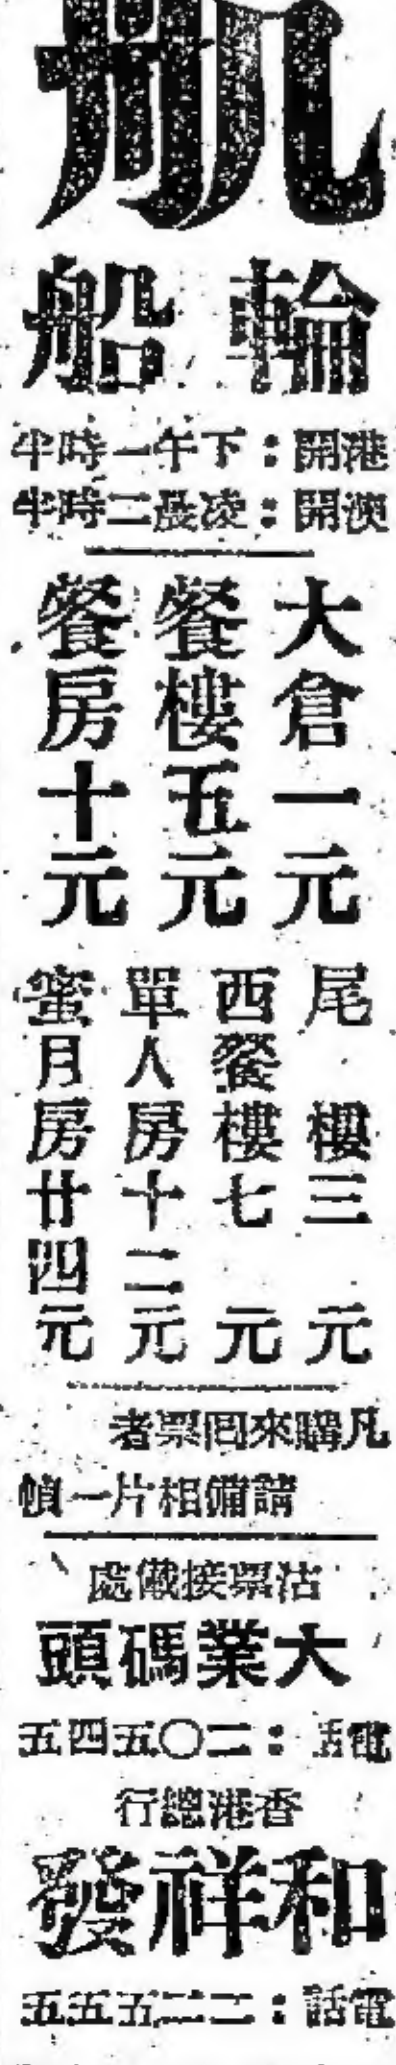 輪船
港開：下午一時半
澳開：凌晨二時半
大倉一元
餐樓五元
餐房十元
尾樓三元
西餐樓七元
單人房十二元
蜜月房廿四元
凡購來回票者
請備相片一幀
沽票接儎處
大業碼頭
電話：二〇五四五
香港總行
和祥發
電話：二二五五五